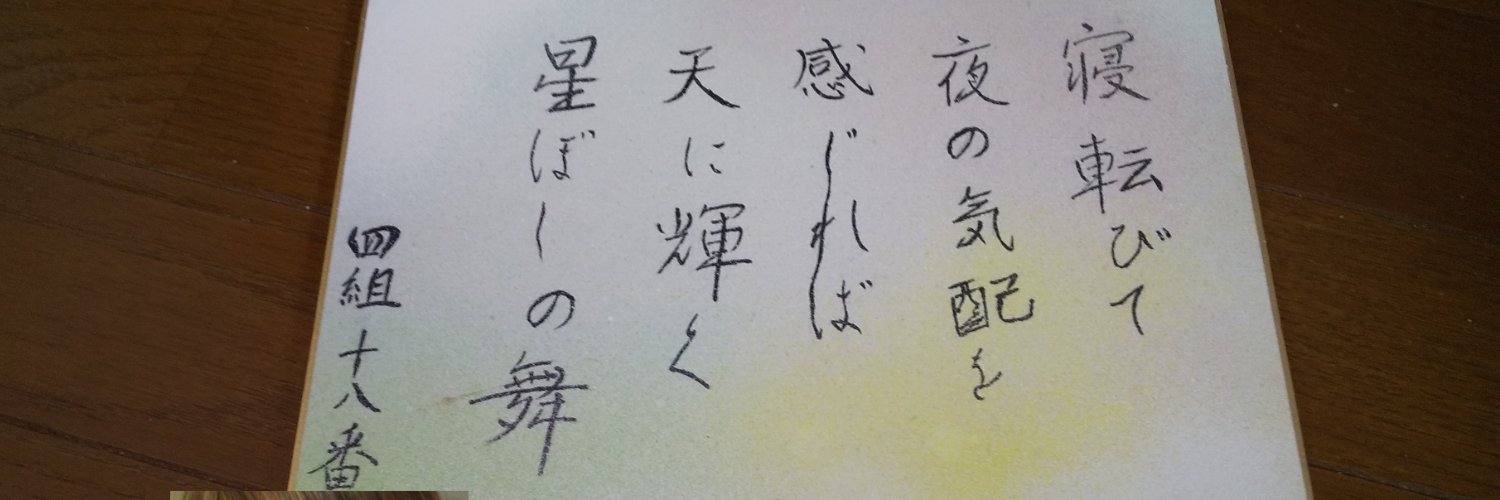 寝転びて
夜の気配を
感じれば
天に輝く
星ぼしの舞
四組十八番